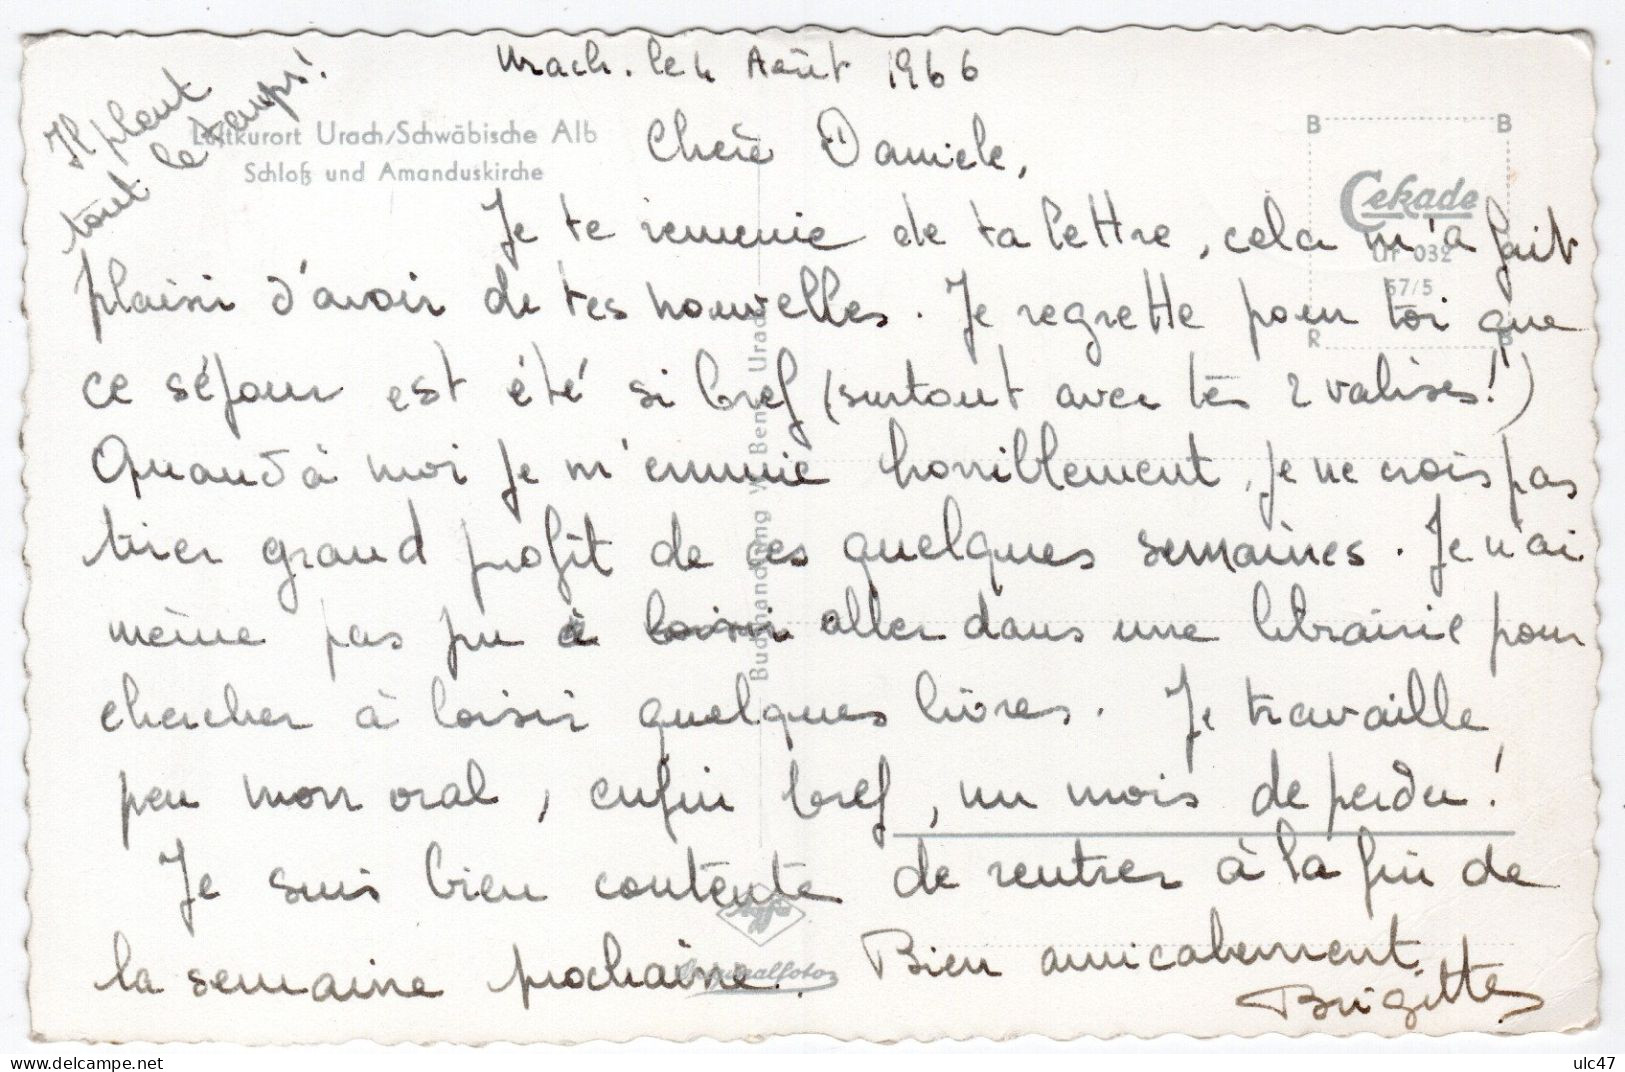 Urach. le 4 Août 1966
Il pleut
tout le temps!
Luftkurort Urach/Schwäbische Alb
Schloß und Amanduskirche
Chère Daniele,
Je te remercie de ta lettre, cela m'a fait
plaisir d'avoir de tes nouvelles. Je regrette pour toi que
ce séjour est été si bref (surtout avec tes 2 valises!)
Quand à moi je m'ennuie horriblement, je ne crois pas
tirer grand profit de ces quelques semaines. Je n'ai
même pas pu à loisir aller dans une librairie pour
chercher à loisir quelques livres. Je travaille
peu mon oral, enfin bref, un mois de perdu!
Je suis bien contente de rentrer à la fin de
la semaine prochaine. Bien amicalement.
Brigitte
B B
Cekade
Ur 032
57/5
R B
Buchhandlung W. Bender Urach
Agfa
Originalfoto
ulc47